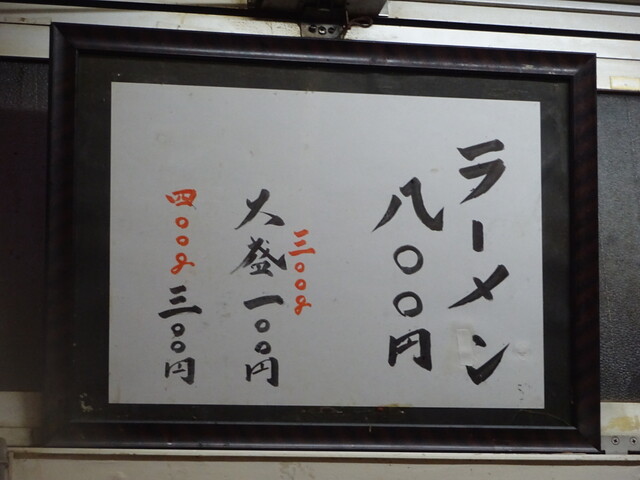 ラーメン
八〇〇円
三〇〇g
大盛一〇〇円
四〇〇g三〇〇円